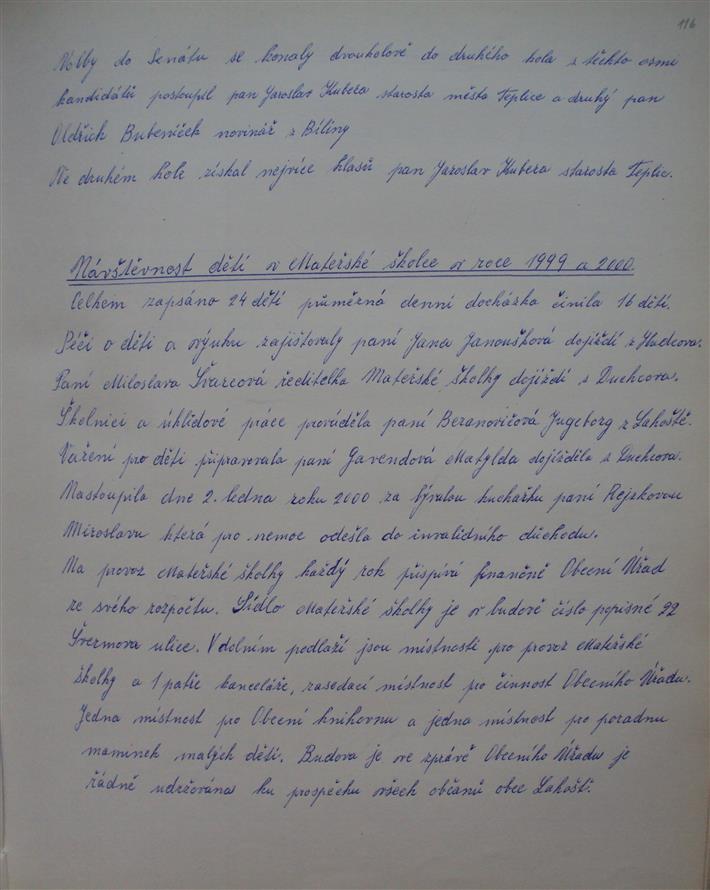 116
Volby do Senátu se konaly dvoukolově do druhého kola z těchto osmi
kandidátů postoupil pan Jaroslav Kubera starosta města Teplice a druhý pan
Oldřich Bubeníček novinář z Bíliny
Ve druhém kole získal nejvíce hlasů pan Jaroslav Kubera starosta Teplic.
Návštěvnost dětí v Mateřské školce v roce 1999 a 2000.
Celkem zapsáno 24 dětí průměrná denní docházka činila 16 dětí.
Péči o děti a výuku zajištovaly paní Jana Janoušková dojíždí z Hudcova.
Paní Miloslava Švarcová ředitelka Mateřské školky dojíždí z Duchcova.
Školnici a úklidové práce prováděla paní Beranovičová Jugeborg z Lahoště.
Vaření pro děti připravovala paní Gavendová Matylda dojížděla z Duchcova.
Nastoupila dne 2. ledna roku 2000 za bývalou kuchařku paní Rejzkovou
Miroslavu která pro nemoc odešla do invalidního důchodu.
Na provoz Mateřské školky každý rok přispívá finančně Obecní Úřad
ze svého rozpočtu. Sídlo Mateřské školky je v budově číslo popisné 22
Švermova ulice. V dolním podlaží jsou místnosti pro provoz Mateřské
školky a 1 patře kanceláře, zasedací místnost po činnost Obecního Úřadu.
Jedna místnost pro Obecní knihovnu a jedna místnost pro poradnu
maminek malých dětí. Budova je ve zprávě Obecního Úřadu je
řádně udržována ku prospěchu všech občanů obce Lahošť.